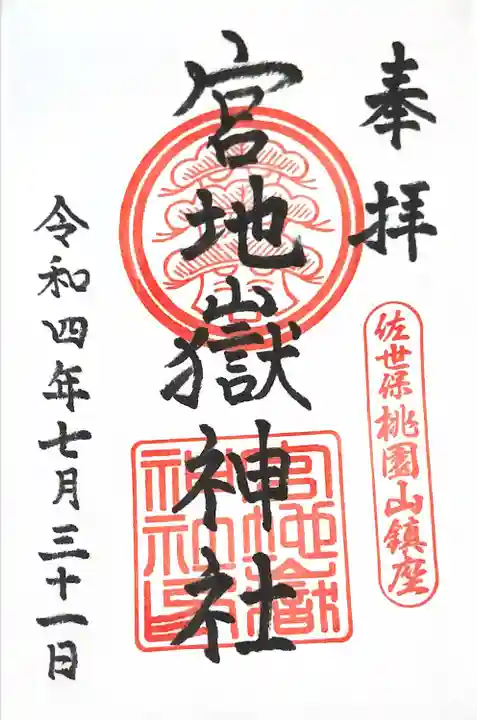 奉拝
佐世保桃園山鎮座
宮地嶽神社
宮地嶽神社印
令和四年七月三十一日